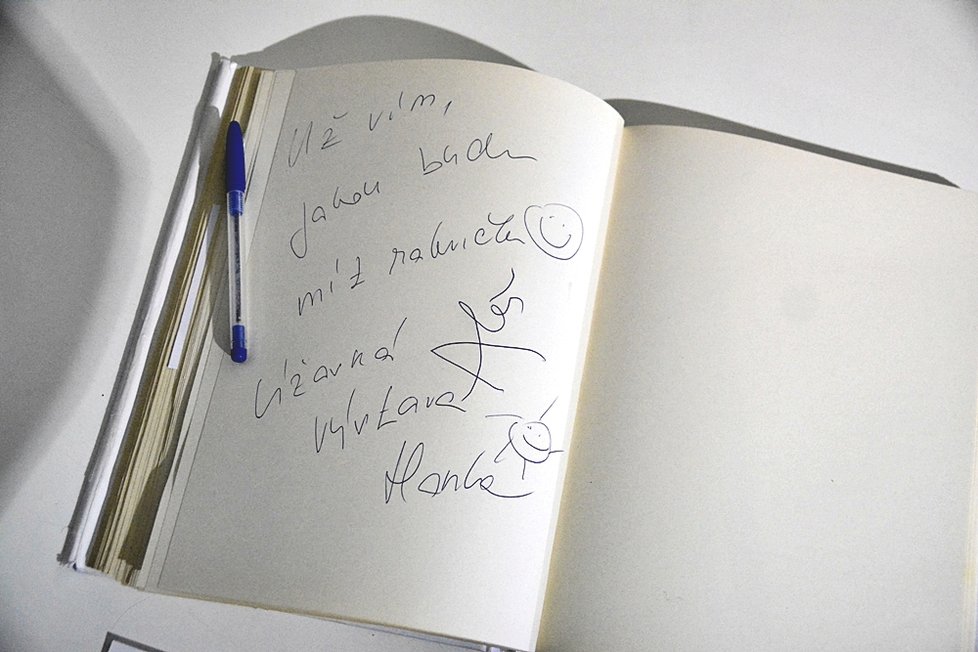 Už vím,
jakou budu
mít rakvičku
Úžasná
výstava
Hanka